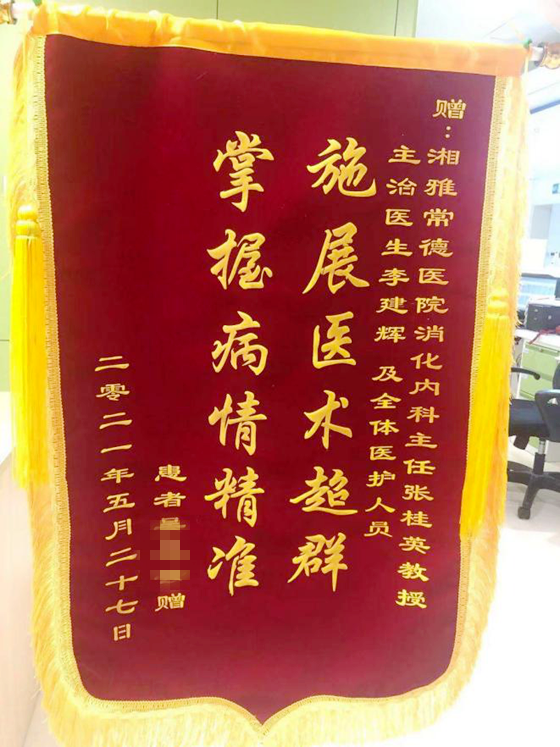 赠：湘雅常德医院消化内科主任张桂英教授
主治医生李建辉 及全体医护人员
施展医术超群
掌握病情精准
患者 赠
二零二一年五月二十七日